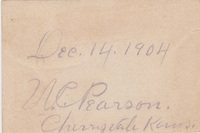 Dec. 14. 1904
N. C. Pearson.
Cherryvale Kans.